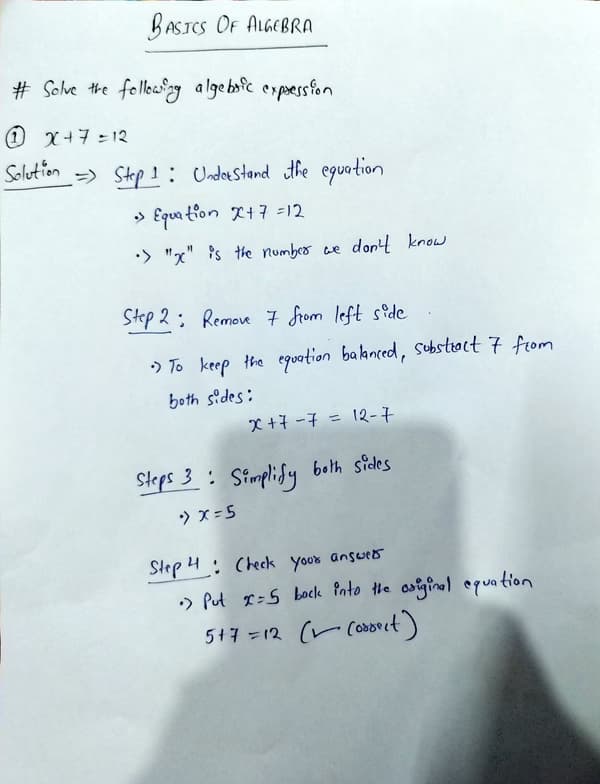 BASICS OF ALGEBRA
# Solve the following algebric expression
① x+7=12
Solution => Step 1 : Understand the equation
•> Equation x+7=12
•> "x" is the number we don't know
Step 2 : Remove 7 from left side
•> To keep the equation balanced, substract 7 from
both sides:
x+7-7 = 12-7
Steps 3 : Simplify both sides
•> x=5
Step 4 : Check your answer
•> Put x=5 back into the original equation
5+7=12 (✓ correct)